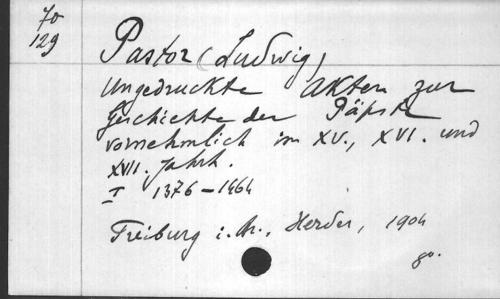 70
129
Pastor (Ludwig)
Ungedruckte Akten zur
Geschichte der Päpste
vornehmlich im XV., XVI. und
XVII. Jahrh.
I 1376-1464
Freiburg i. Br., Herder, 1904
8o.